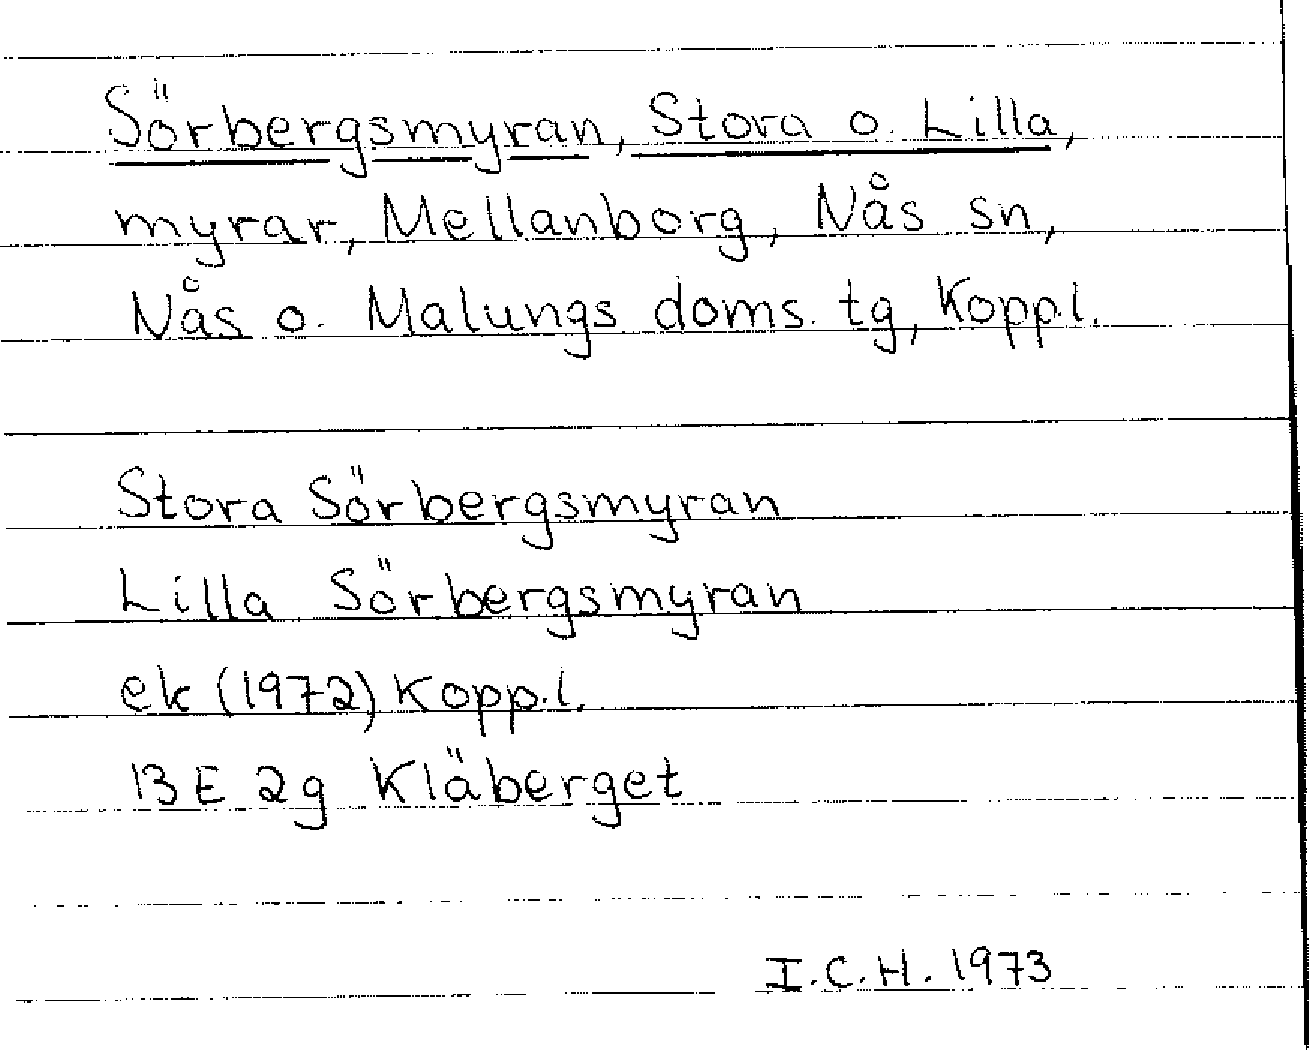 Sörbergsmyran, Stora o. Lilla,
myrar, Mellanborg, Nås sn,
Nås o. Malungs doms. tg, Koppl.
Stora Sörbergsmyran
Lilla Sörbergsmyran
ek (1972) Kopp.l.
13 E 2g Kläberget
I.C.H. 1973